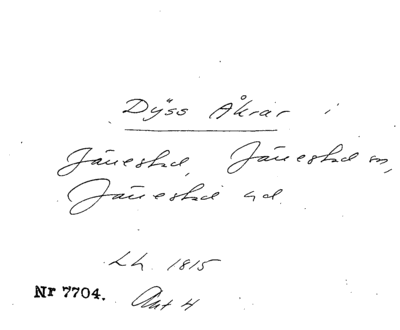 Dyss Åkrar i
Järrestad, Järrestad sn,
Järrestad hd.
Lh. 1815
Nr 7704. Akt 4